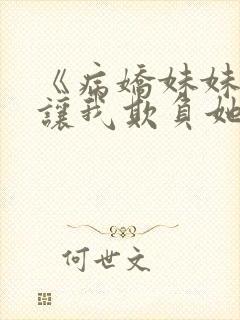 《病嬌妹妹
讓我欺負她
何世文